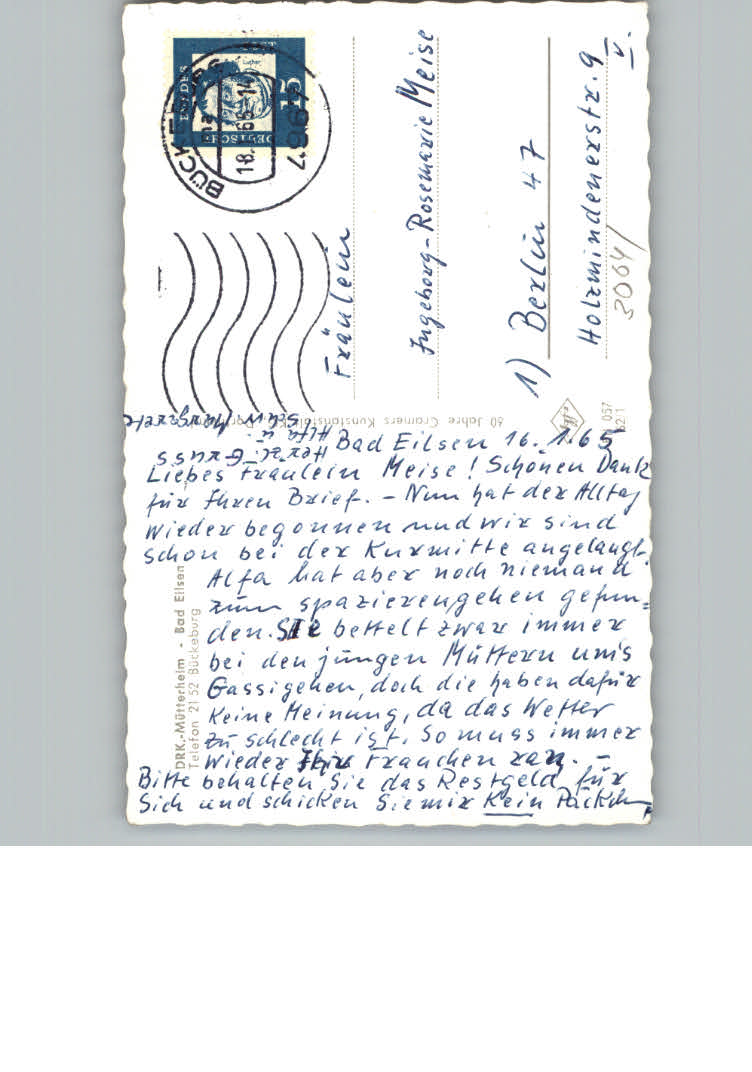 Bad Eilsen 16.1.65
Liebes Fräulein Meise! Schönen Dank
für Ihren Brief. – Nun hat der Alltag
wieder begonnen und wir sind
schon bei der Kurmitte angelangt.
Alfa hat aber noch niemand
zum spazierengehen gefun=
den. Sie bettelt zwar immer
bei den jungen Müttern um's
Gassigehen, doch die haben dafür
keine Meinung, da das Wetter
zu schlecht ist. So muss immer
wieder Ihr Frauchen ran. –
Bitte behalten Sie das Restgeld für
Sich und schicken Sie mir kein Päckchen
Herzl. Gruss
Alfa u.
Margarete
DRK.-Mütterheim - Bad Eilsen
Telefon 21 52 Bückeburg
60 Jahre Cramers Kunstanstalt
057
Fräulein
Ingeborg-Rosemarie Meise
1) Berlin 47
Holzmindenerstr. 9
V.
3064/
15
DEUTSCHE
BUNDESPOST
Luther
BÜCKEBURG
4967